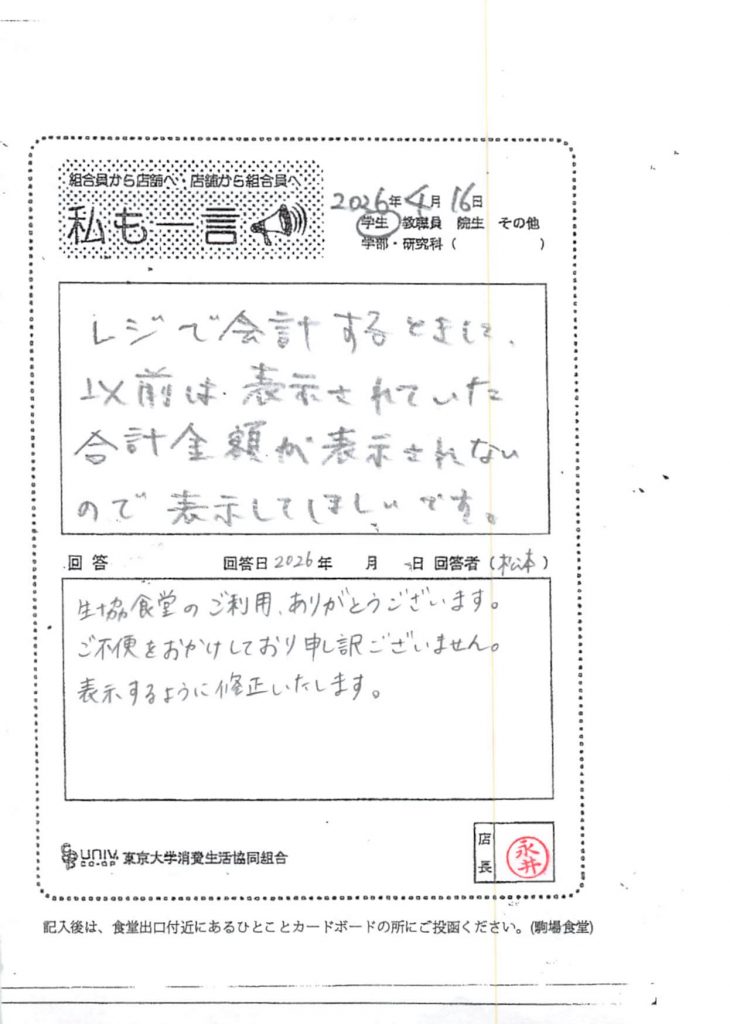 組合員から店舗へ・店舗から組合員へ
私も一言
2026年4月16日
学生 教職員 院生 その他
学部・研究科（ ）
レジで会計するときに、
以前は表示されていた
合計金額が表示されない
ので表示してほしいです。
回答 回答日2026年 月 日 回答者（松本）
生協食堂のご利用、ありがとうございます。
ご不便をおかけしており申し訳ございません。
表示するように修正いたします。
UNIV.
CO-OP
東京大学消費生活協同組合
店長
永井
記入後は、食堂出口付近にあるひとことカードボードの所にご投函ください。(駒場食堂)